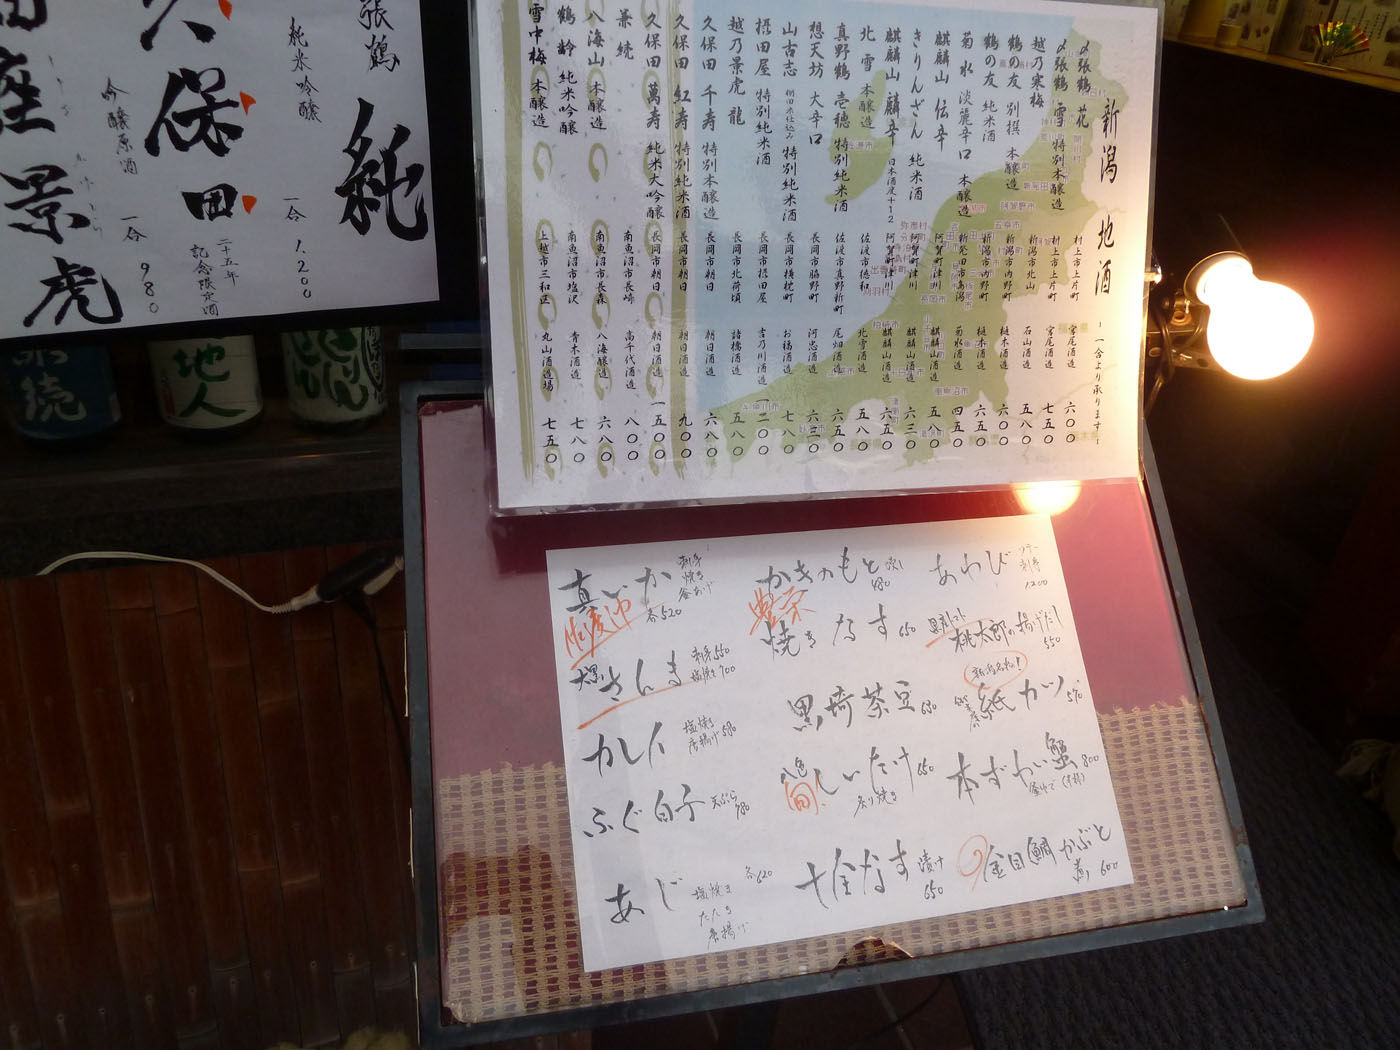 新潟 地酒
一合より承ります
〆張鶴 花 村上市上片町 宮尾酒造 六〇〇
〆張鶴 雪 特別本醸造 村上市上片町 宮尾酒造 七五〇
越乃寒梅 新潟市北山 石山酒造 五八〇
鶴の友 別撰 本醸造 新潟市内野町 樋木酒造 六五〇
鶴の友 純米酒 新潟市内野町 樋木酒造 六五〇
菊水 淡麗辛口 本醸造 新発田市島潟 菊水酒造 四五〇
麒麟山 伝辛 阿賀町津川 麒麟山酒造 五八〇
きりんざん 純米酒 阿賀町津川 麒麟山酒造 六三〇
麒麟山 麒辛 日本酒度+12 阿賀町津川 麒麟山酒造 六五〇
北雪 本醸造 佐渡市徳和 北雪酒造 五八〇
真野鶴 壱穂 特別純米酒 佐渡市真野新町 尾畑酒造 六五〇
想天坊 大辛口 長岡市脇野町 河忠酒造
山古志 棚田米仕込み 特別純米酒 長岡市横枕町 お福酒造 七八〇
摂田屋 特別純米酒 長岡市摂田屋 吉乃川酒造 一二〇〇
越乃景虎 龍 長岡市北荷頃 諸橋酒造 五八〇
久保田 千寿 特別本醸造 長岡市朝日 朝日酒造 六八〇
久保田 紅寿 特別純米酒 長岡市朝日 朝日酒造 九〇〇
久保田 萬寿 純米大吟醸 長岡市朝日 朝日酒造 一五〇〇
兼続 南魚沼市長崎 高千代酒造 八〇〇
八海山 本醸造 南魚沼市長森 八海醸造 六八〇
鶴齢 純米吟醸 南魚沼市塩沢 青木酒造 七八〇
雪中梅 本醸造 上越市三和区 丸山酒造場 七五〇
張鶴 純
純米吟醸
一合 1,200
久保田
吟醸原酒
二十五年
記念限定酒
一合 980
座景虎
地人
あわび
刺身
1200
桃太郎の揚げだし
550
紙カツ 570
本ずわい蟹 800
釜ゆで
金目鯛かぶと
煮 600
かきのもと
豊栄
焼きなす 650
黒埼茶豆 630
八色
旬
しいたけ 650
炙り焼き
十全なす 漬け
650
真いか
刺身
焼き
各520
佐渡沖
大黒
さんま
刺身550
塩焼き700
カレイ
塩焼き
唐揚げ 580
ふぐ白子
天ぷら
780
あじ
各620
塩焼き
たたき
唐揚げ